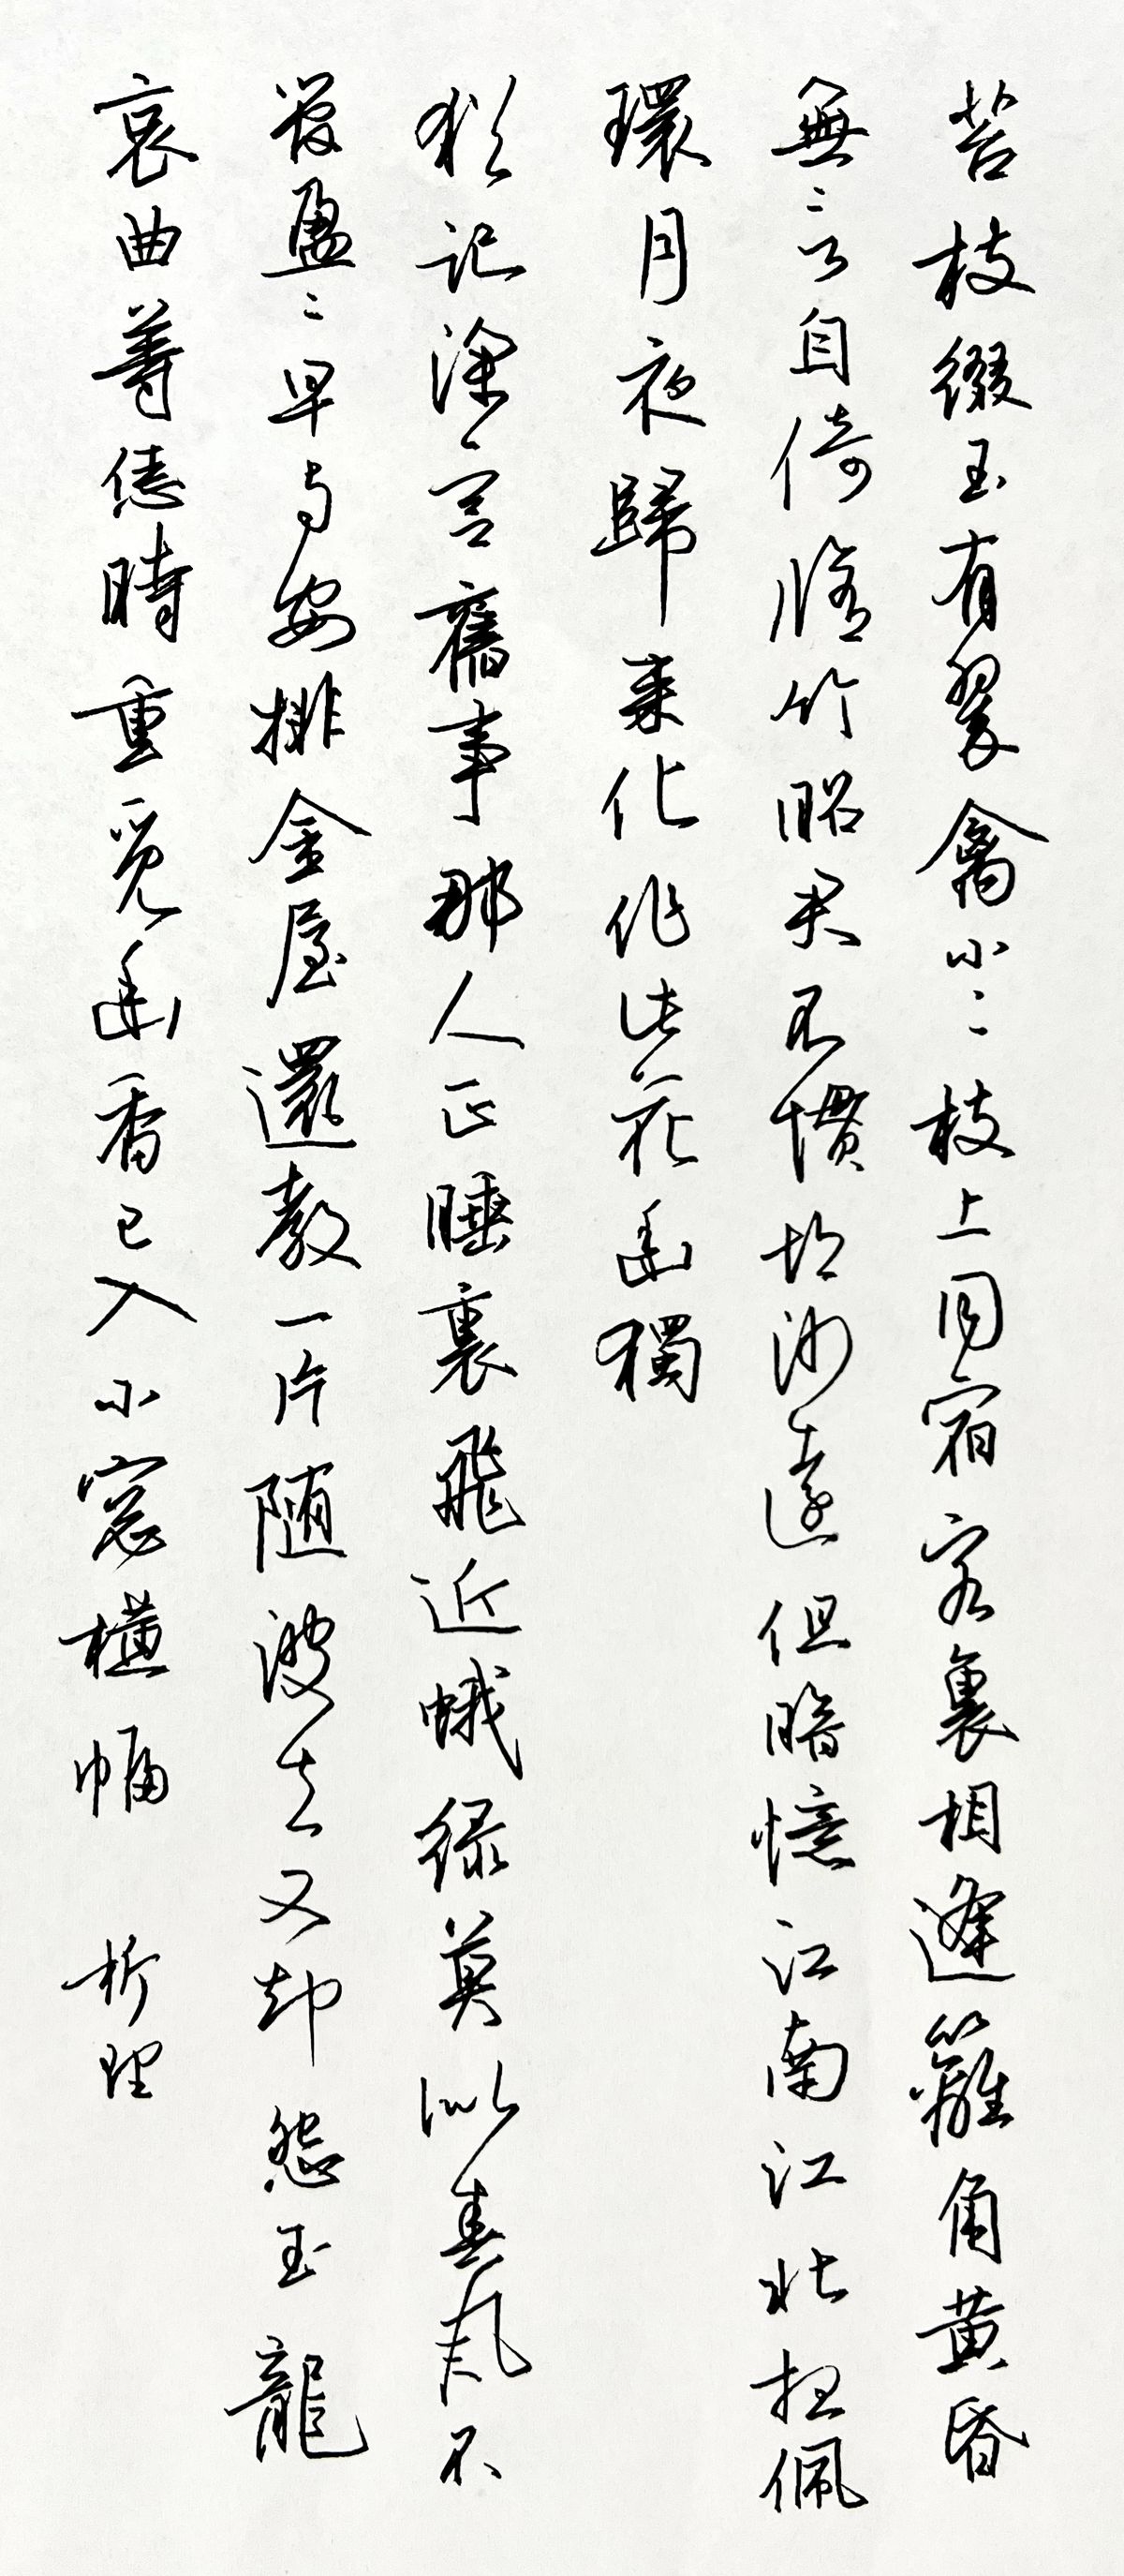 苔枝綴玉有翠禽小〻枝上同宿客裏相逢籬角黄昏
無言自倚脩竹昭君不慣胡沙遠但暗憶江南江北想佩
環月夜歸来化作此花幽獨
猶记深宮舊事那人正睡裏飛近蛾绿莫似春風不
管盈〻早与安排金屋還教一片随波去又却怨玉龍
哀曲等恁時重覓幽香已入小窓橫幅 析理